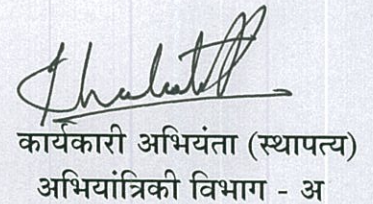 कार्यकारी अभियंता (स्थापत्य)
अभियांत्रिकी विभाग - अ